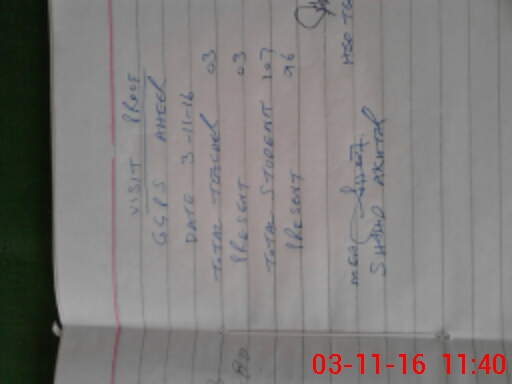 VISIT PROOF
GGPS AHEER
DATE 3-11-16
TOTAL TEACHER 03
PRESENT 03
TOTAL STUDENT 107
PRESENT 96
MEA
SHAHID AKHTAR
03-11-16 11:40